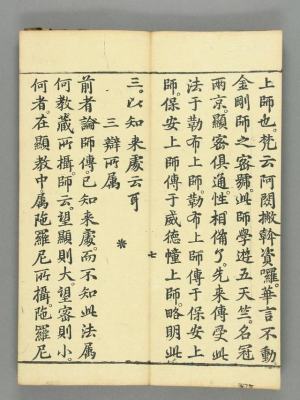 上師也。梵云阿閦撇斡資囉。華言不動
金剛師之密號。此師學遊五天竺。名冠
兩京。顯密俱通。性相備了。先來傳受此
法于勒布上師。勒布上師傳于保安上
師。保安上師傳于威德幢上師。略明此
三。以知来處云耳
三辯所属
前者論師傳。已知来處。而不知此法属
何教藏所攝。師云。望顯則大。望密則小。
何者。在顯教中属陁羅尼所攝。陁羅尼
七